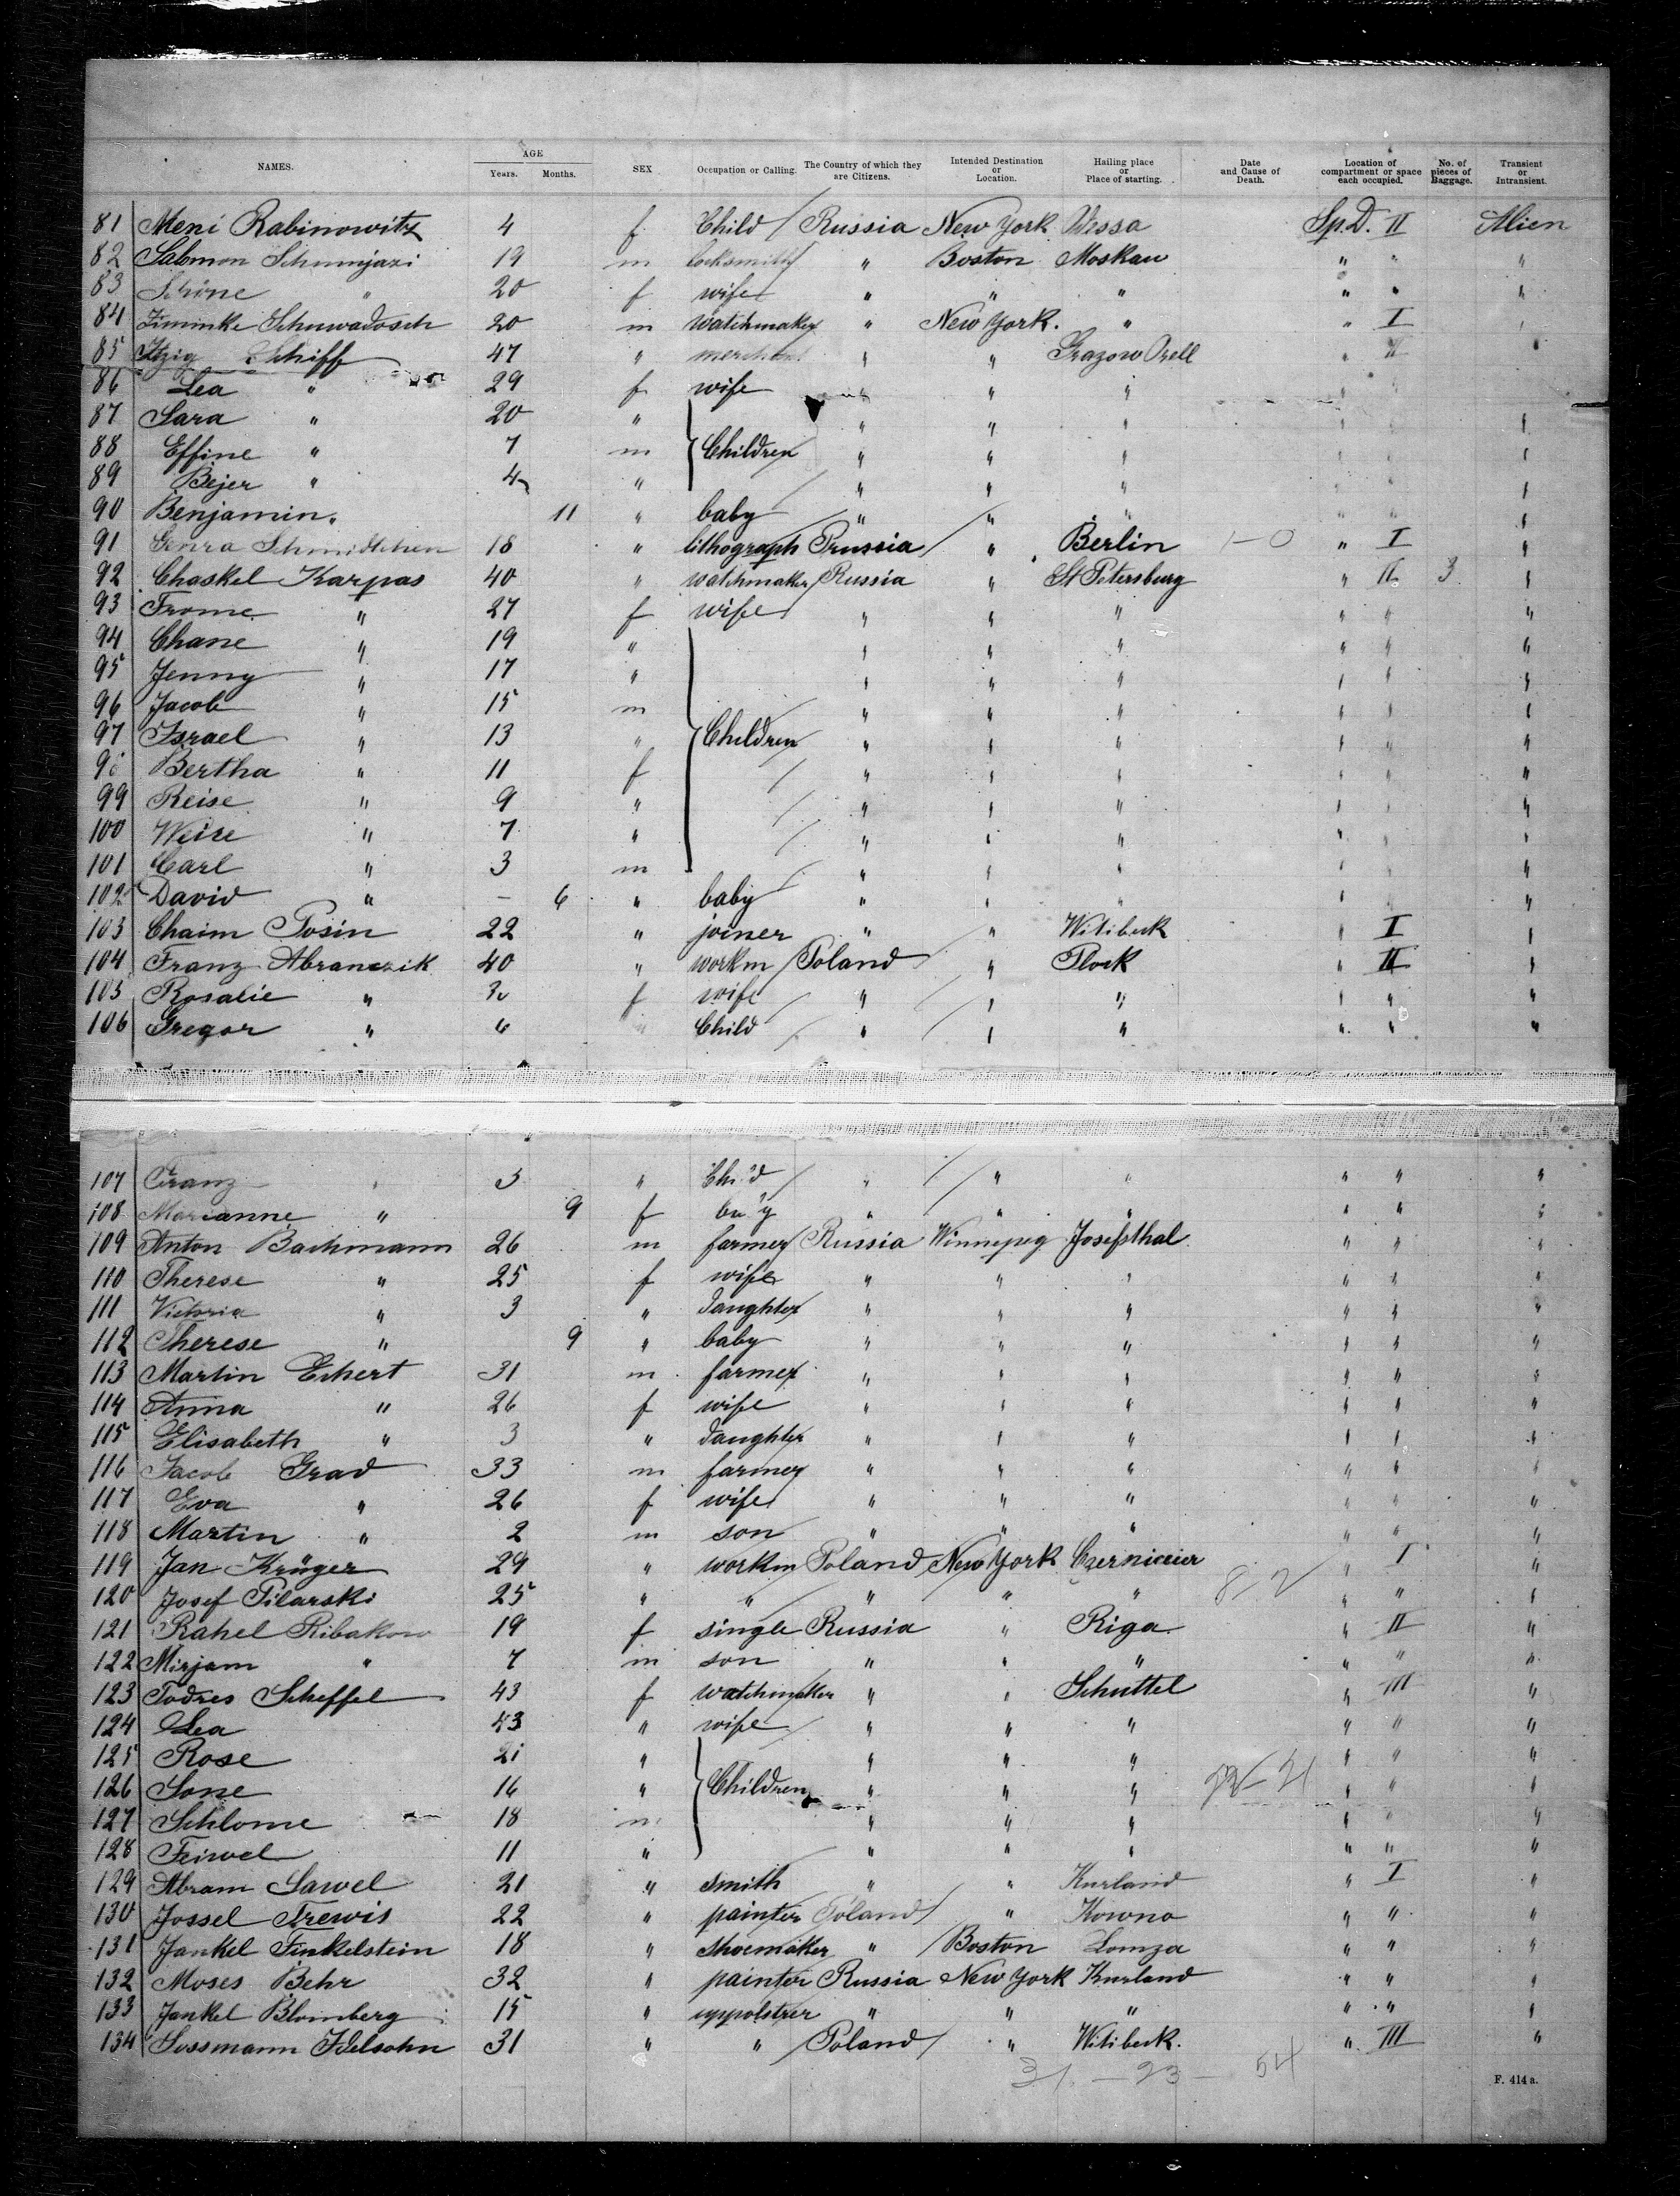 NAMES. AGE Years. Months. SEX Occupation or Calling. The Country of which they are Citizens. Intended Destination or Location. Hailing place or Place of starting. Date and Cause of Death. Location of compartment or space each occupied. No. of pieces of Baggage. Transient or Intransient.
81 Meni Rabinowitz 4 f Child Russia New York Odessa Sp.D. II Alien
82 Salomon 19 m locksmith " Boston Moskau " " "
83 Schöne " 20 f wife " " " " " "
84 20 m watchmaker " New York. " " I "
85 Itzig Schiff 47 " merchant " " Grazow Orell " II "
86 Lea " 29 f wife " " " "
87 Sara " 20 " " " " " " "
88 Effine " 7 m Children " " " " " "
89 Bejer " 4 " " " " " " "
90 Benjamin " 11 " baby " " " " " "
91 18 " lithograph Prussia " Berlin 1-0 " I "
92 Chaskel Karpas 40 " watchmaker Russia " St Petersburg " II 3 "
93 Frome " 27 f wife " " " " " "
94 Chane " 19 " " " " " " "
95 Jenny " 17 " " " " " " "
96 Jacob " 15 m " " " " " "
97 Israel " 13 " Children " " " " " "
98 Bertha " 11 f " " " " " "
99 Reise " 9 " " " " " " "
100 Weise " 7 " " " " " " "
101 Carl " 3 m " " " " " "
102 David " — 6 " baby " " " " " "
103 Chaim Posin 22 " joiner " " Witibeck " I "
104 Franz Abranczik 40 " workm Poland " Plock " II "
105 Rosalie " 30 f wife " " " " " "
106 Gregor " 6 " Child " " " " " "
107 Franz " 3 " Child " " " " " "
108 Marianne " 9 f baby " " " " " "
109 Anton Bachmann 26 m farmer Russia Winnepeg Josefsthal " " "
110 Therese " 25 f wife " " " " " "
111 Victoria " 3 " daughter " " " " " "
112 Therese " 9 " baby " " " " " "
113 Martin Eckert 31 m farmer " " " " " "
114 Anna " 26 f wife " " " " " "
115 Elisabeth " 3 " daughter " " " " " "
116 Jacob Grad 33 m farmer " " " " " "
117 Eva " 26 f wife " " " " " "
118 Martin " 2 m son " " " " " "
119 Jan Krüger 29 " workm Poland New York " I "
120 Josef Pilarski 25 " " " " " 8-2 " " "
121 Rahel Ribakow 19 f single Russia " Riga " II "
122 Mirjam " 7 m son " " " " " "
123 Todres Scheffel 43 f watchmaker " " Schuttel " III "
124 Lea 43 " wife " " " " " "
125 Rose 21 " " " " " " "
126 Sone 16 " Children " " " " " "
127 Schlome 18 m " " " " " "
128 Feiwel 11 " " " " " " "
129 Abram Sawel 21 " smith " " Kurland " I "
130 Jossel Trewis 22 " painter Poland " Kowno " " "
131 Jankel Finkelstein 18 " shoemaker " Boston Lomza " " "
132 Moses Behr 32 " painter Russia New York Kurland " " "
133 Jankel Blomberg 15 " uppolstrer " " " " " "
134 Sussmann Idelsohn 31 " " Poland " Witibeck. " III "
31 — 23 — 54
F. 414 a.